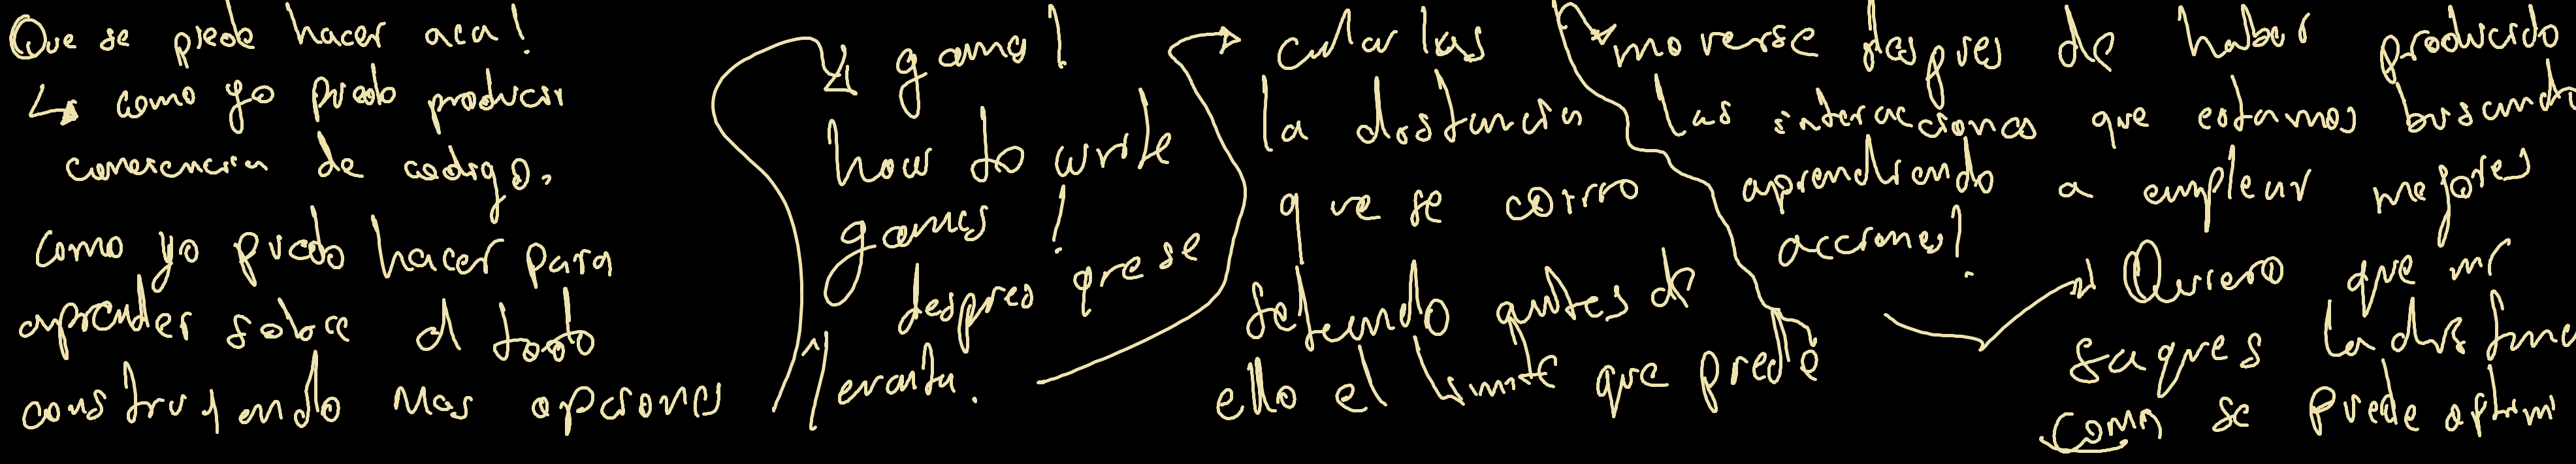 Que se puede hacer aca!
como yo puedo producir
de codigo.
como yo puedo hacer para
aprender sobre el todo
construyendo mas opciones
game!
how to write
games!
despues que se
levanta.
la distancia
que se corrio
seteando antes de
ello el limite que puede
moverse despues de haber producido
las interacciones que estamos buscando
aprendiendo a emplear mejores
acciones!
Quiero que me
saques la distanc
como se puede optimi